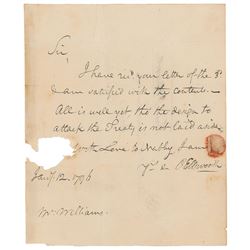 Sir,
I have rec'd your letter of the 3d
I am satisfied with the contents. —
All is well yet tho the design to
attack the Treaty is not laid aside
Love to Nabby I am
Yrs &c O Ellsworth
Jany 12. 1796
Mr Williams.